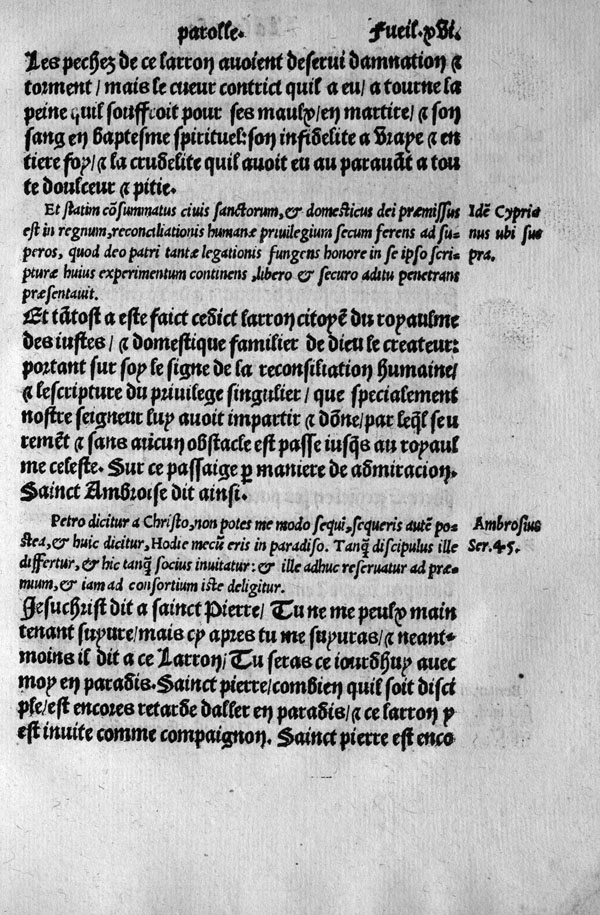 parolle. Fueil.xvi.
Les pechez de ce larron avoient deserui damnation &
torment/ mais le cueur contrict quil a eu/ a tourne la
peine quil souffroit pour ses maulx/en martire/ & son
sang en baptesme spirituel: son infidelite a vraye & en
tiere foy/ & la crudelite quil avoit eu au paravāt a tou
te doulceur & pitie.
Et statim cōsummatus civis sanctorum, & domesticus dei præmissus
est in regnum, reconciliationis humanæ privilegium secum ferens ad su-
peros, quod deo patri tantæ legationis fungens honore in se ipso scri-
pturæ huius experimentum continens, libero & securo aditu penetrans
præsentauit.
Idē Cypria
nus ubi su
pra.
Et tātost a este faict cedict larron citoyē du royaulme
des iustes/ & domestique familier de dieu le createur:
portant sur soy le signe de la reconsiliation humaine/
& lescripture du privilege singulier/ que specialement
nostre seigneur luy avoit impartir & dōne/par leq̄l seu
remēt & sans aucun obstacle est passe iusq̄s au royaul
me celeste. Sur ce passaige ꝑ maniere de admiracion.
Sainct Ambroise dit ainsi.
Petro dicitur a Christo, non potes me modo sequi, sequeris autē po-
stea, & huic dicitur, Hodie mecū eris in paradiso. Tanq̄ discipulus ille
differtur, & hic tanq̄ socius invitatur: & ille adhuc reservatur ad præ-
mium, & iam ad consortium iste deligitur.
Ambrosius
Ser.45.
Jesuchrist dit a sainct Pierre/ Tu ne me peulx main
tenant suyure/mais cy apres tu me suyuras/& neant-
moins il dit a ce Larron/ Tu seras ce iourdhuy avec
moy en paradis. Sainct pierre/combien quil soit disci
ple/est encores retarde daller en paradis/& ce larron y
est invite comme compaignon. Sainct pierre est enco